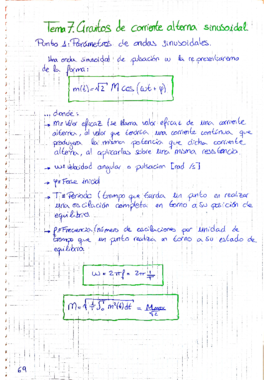 Tema 7. Circuitos de corriente alterna sinusoidal.
Punto 1: Parámetros de ondas sinusoidales.
Una onda sinusoidal de pulsación ω la representaremos
de la forma:
m(t) = √2 · M cos (ωt + φ)
donde:
→ M = Valor eficaz (se llama valor eficaz de una corriente
alterna, al valor que tendría una corriente continua que
produjera la misma potencia que dicha corriente
alterna, al aplicarlas sobre una misma resistencia
→ ω = Velocidad angular o pulsacion [rad/s]
→ φ = Fase inicial
→ T = Período (tiempo que tarda un punto en realizar
una oscilación completa en torno a su posición de
equilibrio.
→ f = Frecuencia (número de oscilaciones por unidad de
tiempo que un punto realiza en torno a su estado de
equilibrio.
ω = 2πf = 2π 1/T
M = √(1/T ∫₀ᵀ m²(t) dt) = Mmax/√2
69